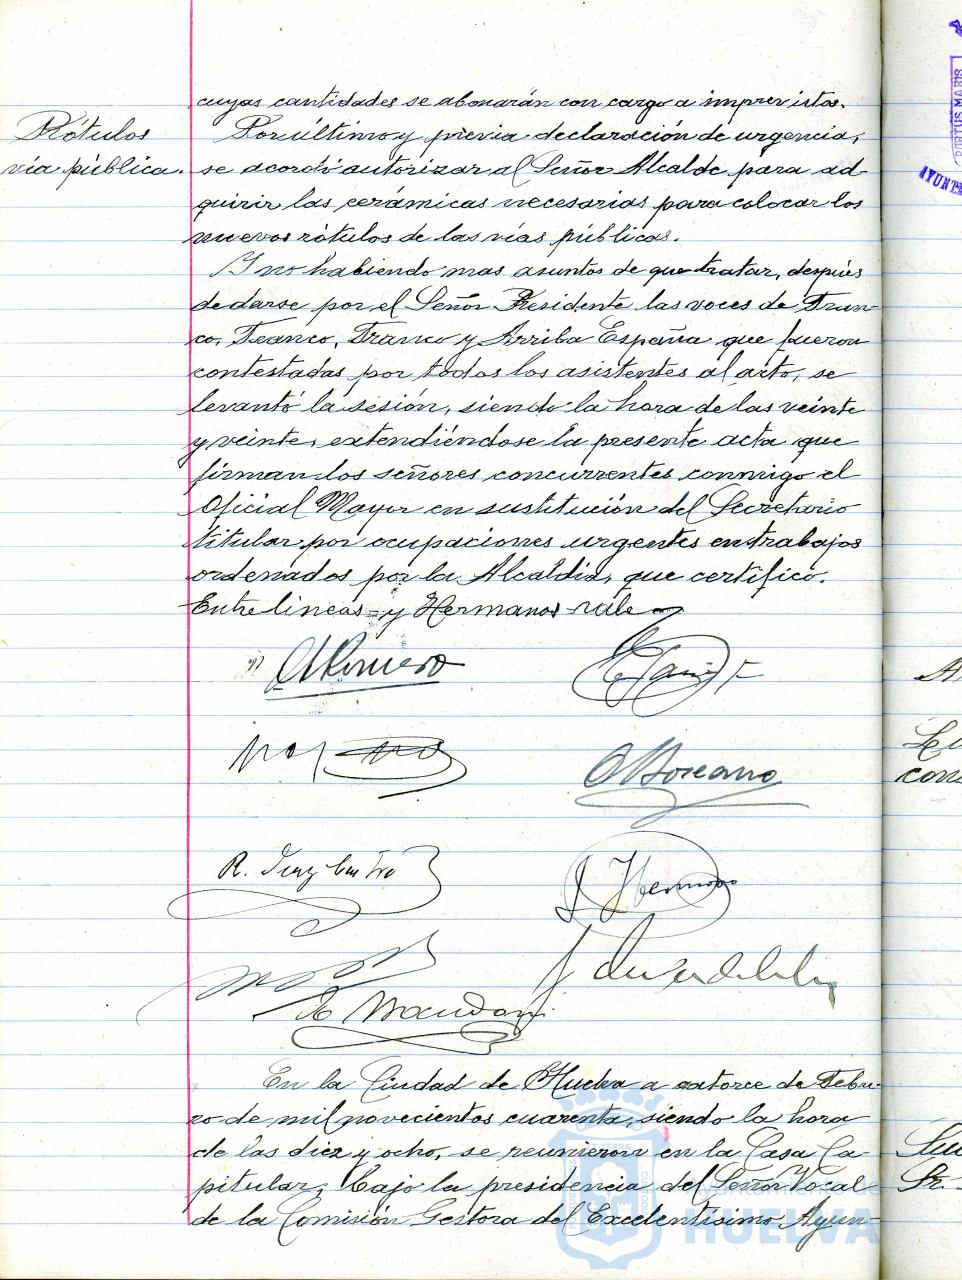 cuyas cantidades se abonarán con cargo a imprevistos.
Rótulos
vía pública.
Por último y previa declaración de urgencia,
se acordó autorizar al Señor Alcalde para ad-
quirir las cerámicas necesarias para colocar los
nuevos rótulos de las vías públicas.
Y no habiendo mas asuntos de que tratar, después
de darse por el Señor Presidente las voces de Fran-
co, Franco, Franco y Arriba España que fueron
contestadas por todos los asistentes al acto, se
levantó la sesión, siendo la hora de las veinte
y veinte, extendiéndose la presente acta que
firman los señores concurrentes conmigo el
Oficial Mayor en sustitución del Secretario
titular por ocupaciones urgentes en trabajos
ordenados por la Alcaldía, que certifico.
Entre lineas = y Hermanos = vale
A Romero
R. Diaz Castro
En la Ciudad de Huelva a catorce de Febre-
ro de mil novecientos cuarenta, siendo la hora
de las diez y ocho, se reunieron en la Casa Ca-
pitular, bajo la presidencia del Señor Vocal
de la Comisión Gestora del Excelentísimo Ayun-
Ayuntamiento de
HUELVA
PORTUS MARIS
AYUNT